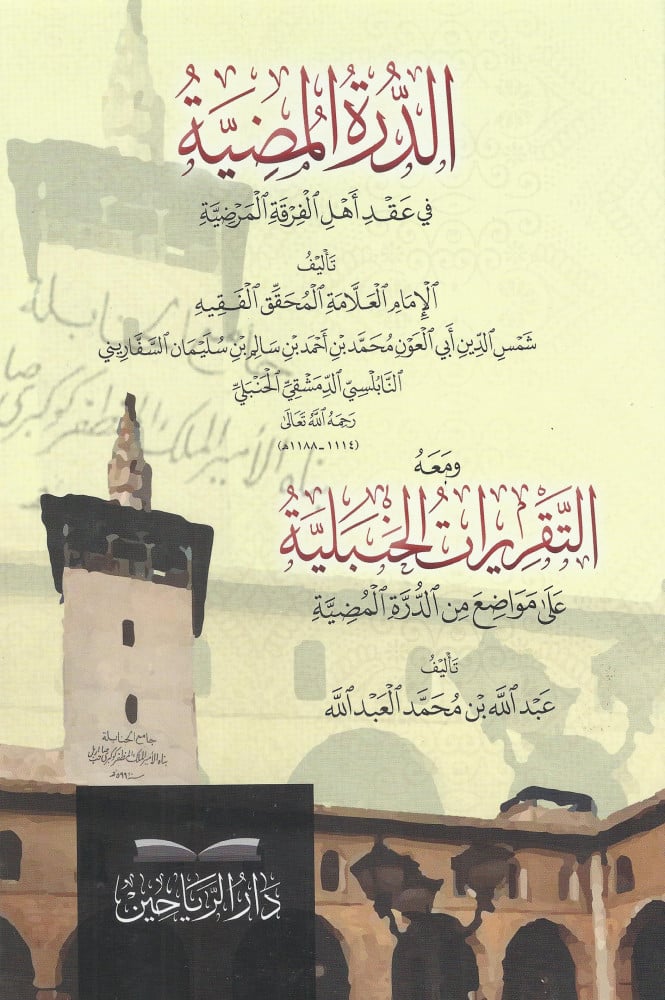 الدُّرَةُ المُضِيَّةُ
في عَقْدِ أَهْلِ الْفِرْقَةِ الْمَرْضِيَّةِ
تَأْلِيْفُ
الْإِمَامِ الْعَلَّامَةِ الْمُحَقِّقِ الْفَقِيهِ
شَمْسِ الدِّينِ أَبِي الْعَوْنِ مُحَمَّدِ بْنِ أَحْمَدَ بْنِ سَالِمِ بْنِ سُلَيْمَان السَّفَّارِيني
النَّابُلْسِيِّ الدِّمَشْقِيِّ الْحَنْبَلِيِّ
رَحِمَهُ اللهُ تَعَالَى
(١١١٤-١١٨٨هـ)
وَمَعَهُ
التَّقْرِيرَاتُ الحَنْبَلِيَّةُ
عَلَى مَوَاضِعَ مِنَ الدُّرَّةِ الْمُضِيَّةِ
تَأْلِيْفُ
عَبْدِ اللهِ بْنِ مُحَمَّدٍ الْعَبْدِ اللهِ
جامع الحنابلة
بناه الأمير الملك المظفر كوكبري صاحب إربل
سنة ٥٩٩هـ
دَارُ الرَّيَاحِيْن